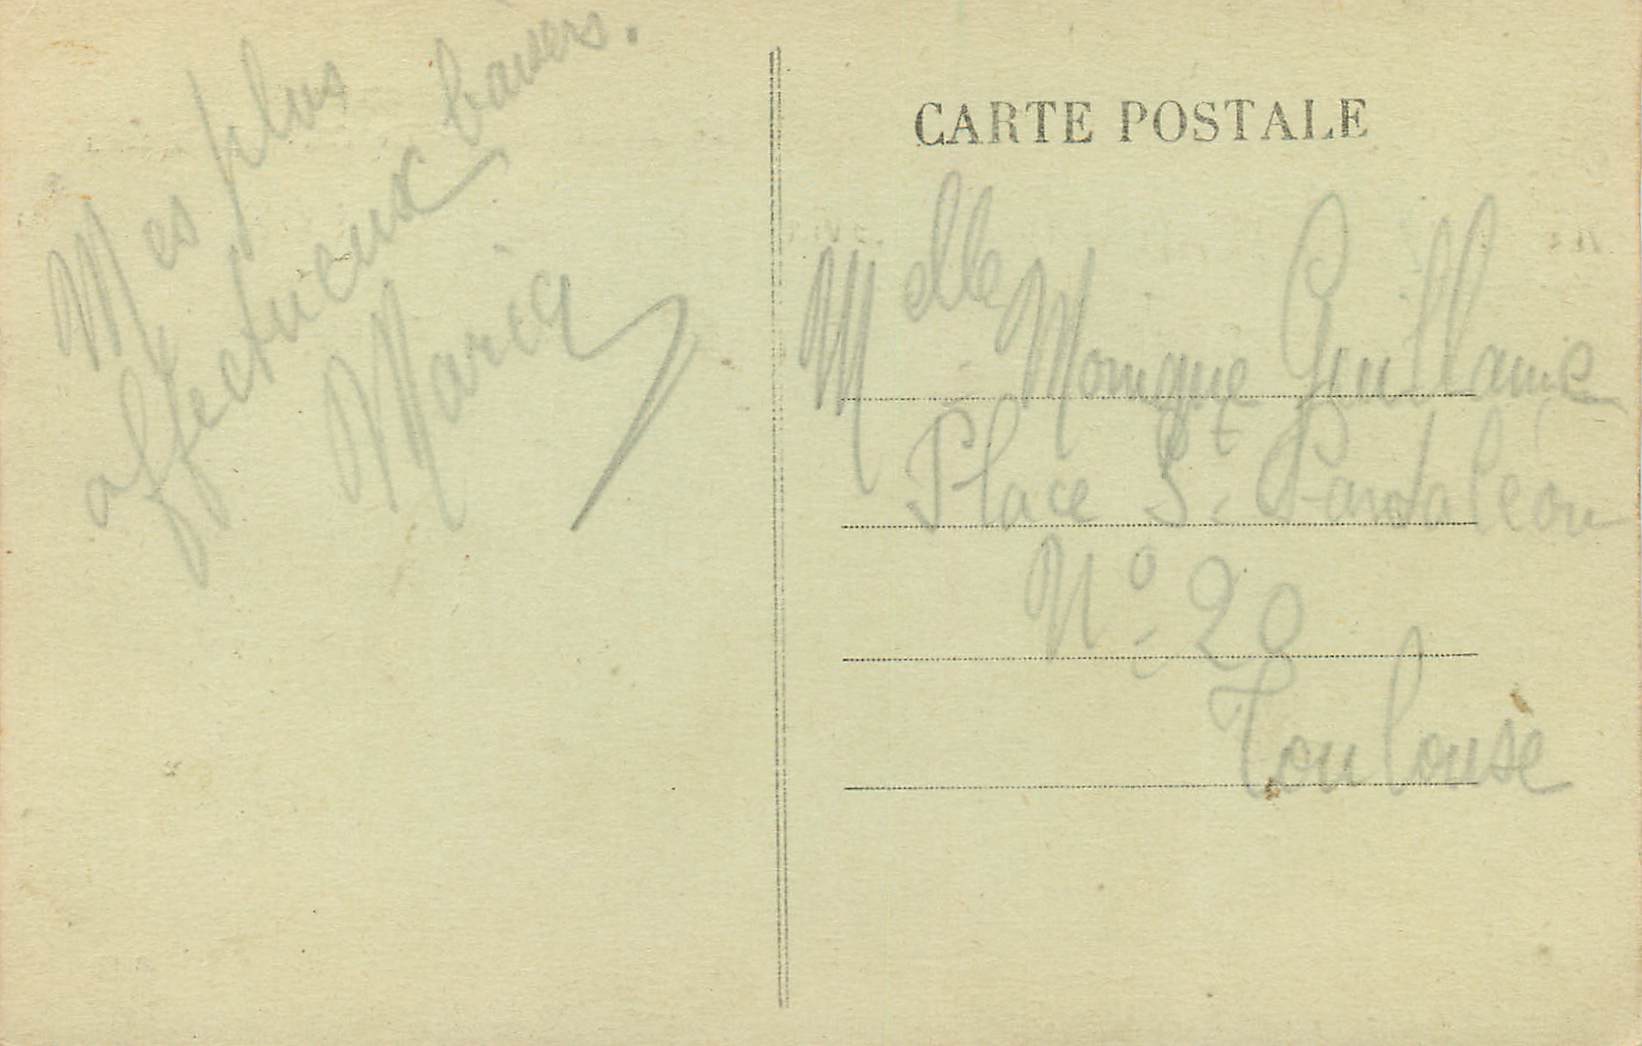 Mes plus
affectueux baisers.
Maria
CARTE POSTALE
Melle Monique Guillaume
Place S. Pantaléon
Nº 20
Toulouse